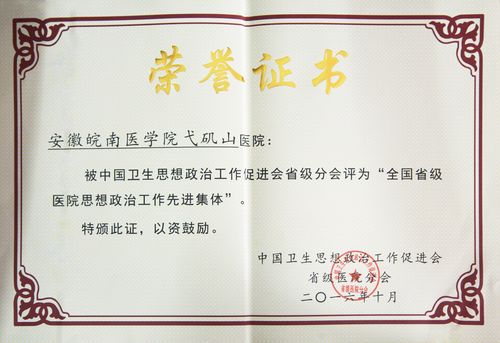 荣誉证书
安徽皖南医学院弋矶山医院：
被中国卫生思想政治工作促进会省级分会评为“全国省级
医院思想政治工作先进集体”。
特颁此证，以资鼓励。
中国卫生思想政治工作促进会
省级医院分会
二〇一六年十月